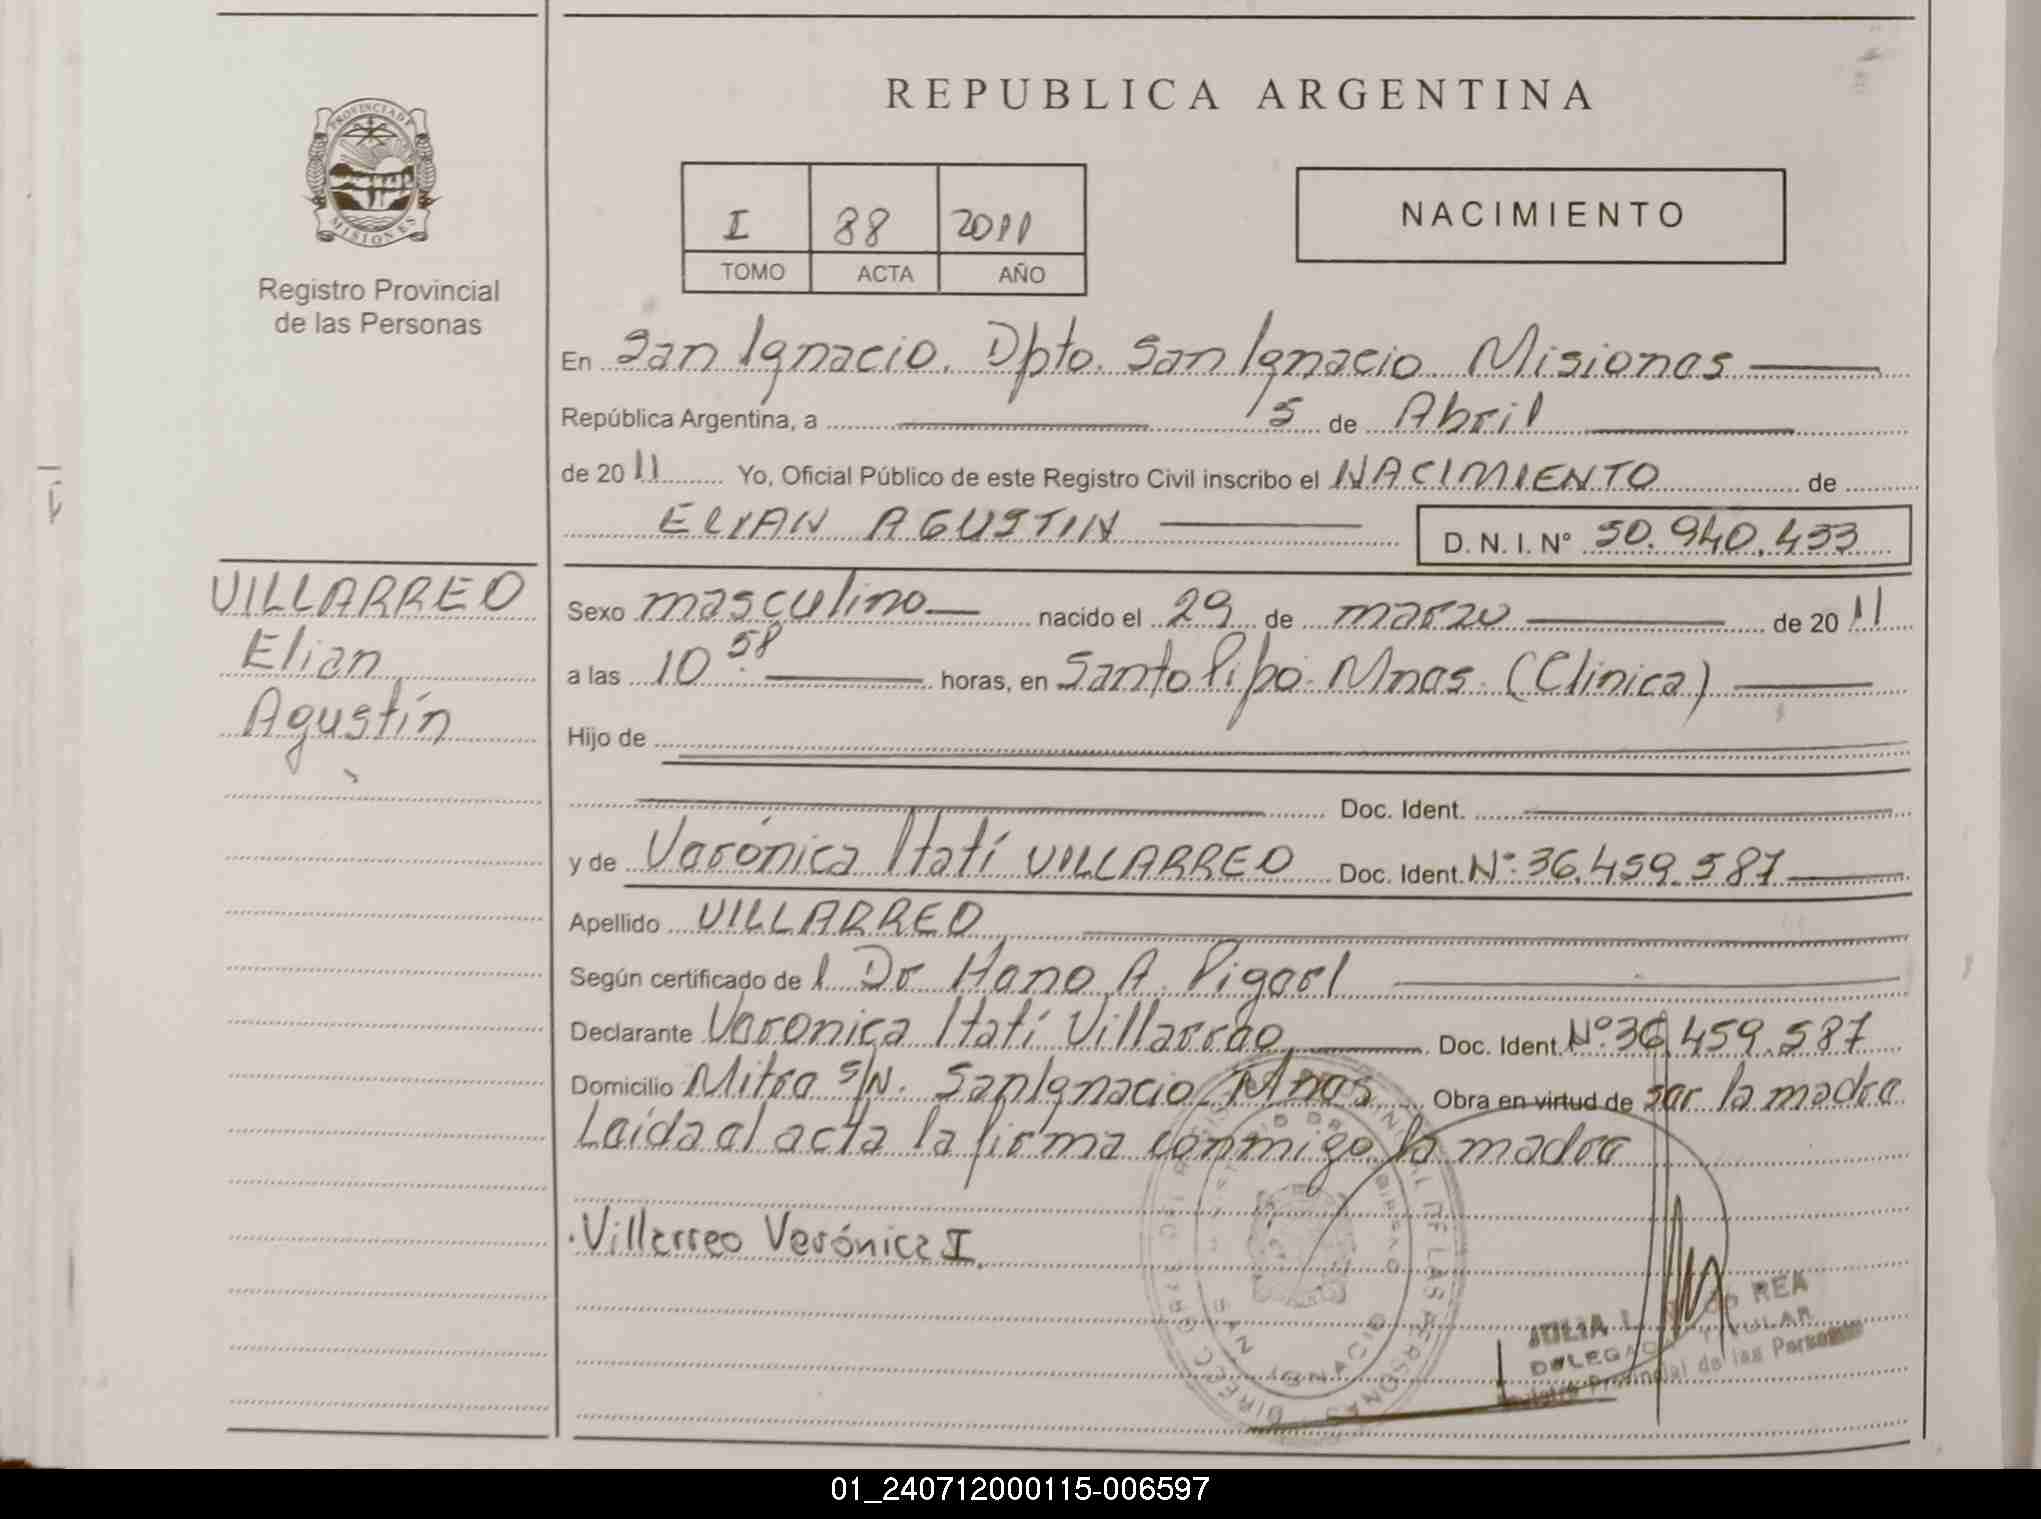 REPUBLICA ARGENTINA
PROVINCIA DE
MISIONES
Registro Provincial
de las Personas
I 88 2011
TOMO ACTA AÑO
NACIMIENTO
En San Ignacio. Dpto. San Ignacio. Misiones
República Argentina, a 5 de Abril
de 2011 Yo, Oficial Público de este Registro Civil inscribo el NACIMIENTO de
ELIAN AGUSTIN D. N. I. Nº 50.940.433
VILLARREO
Elian
Agustín
Sexo masculino nacido el 29 de marzo de 2011
a las 10 58 horas, en Santo Pipó. Mnes. (Clinica)
Hijo de
Doc. Ident.
y de Verónica Itatí VILLARREO Doc. Ident. Nº: 36.459.587
Apellido VILLARREO
Según certificado de l Dr Hano A.
Declarante Veronica Itatí Villarreo Doc. Ident. Nº 36.459.587
Domicilio Mitre S/N. San Ignacio Mnes. Obra en virtud de ser la madre
Leída el acta la firma conmigo la madre
Villarreo Verónica I.
SAN IGNACIO
JULIA REA
TITULAR
Registro Provincial de las Personas
01_240712000115-006597